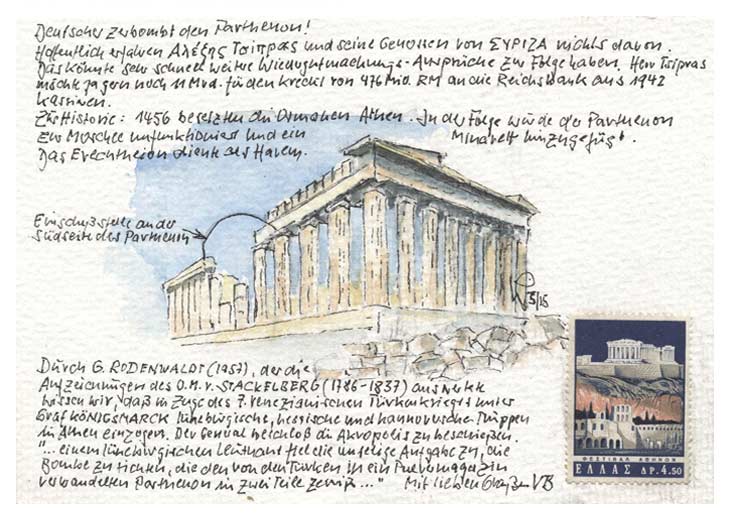 Deutscher zerbombt den Parthenon!
Hoffentlich erfahren Αλέξης Τσίπρας und seine Genossen von ΣΥΡΙΖΑ nichts davon.
Das könnte sehr schnell weitere Wiedergutmachungs-Ansprüche zur Folge haben. Herr Tsipras
möchte ja gern noch 11 Mrd. für den Kredit von 476 Mio. RM an die Reichsbank aus 1942
kassieren.
Zur Historie: 1456 besetzten die Osmanen Athen. In der Folge wurde der Parthenon
zur Moschee umfunktioniert und ein Minarett hinzugefügt.
Das Erechtheion diente als Harem.
Einschußstelle an der
Südseite des Parthenon
5/15
Durch G. RODENWALDT (1957), der die
Aufzeichnungen des O.M.v. STACKELBERG (1786-1837) auswertete
wissen wir, daß im Zuge des 7. venezianischen Türkenkrieges unter
Graf KÖNIGSMARCK lüneburgische, hessische und hannoversche Truppen
in Athen einzogen. Der General beschloß die Akropolis zu beschießen.
"... einem lüneburgischen Leutnant fiel die unselige Aufgabe zu, die
Bombe zu richten, die den von den Türken in ein Pulvermagazin
verwandelten Parthenon in zwei Teile zerriß..." Mit lieben Grüßen VB
ΦΕΣΤΙΒΑΛ ΑΘΗΝΩΝ
ΕΛΛΑΣ ΔΡ. 4.50